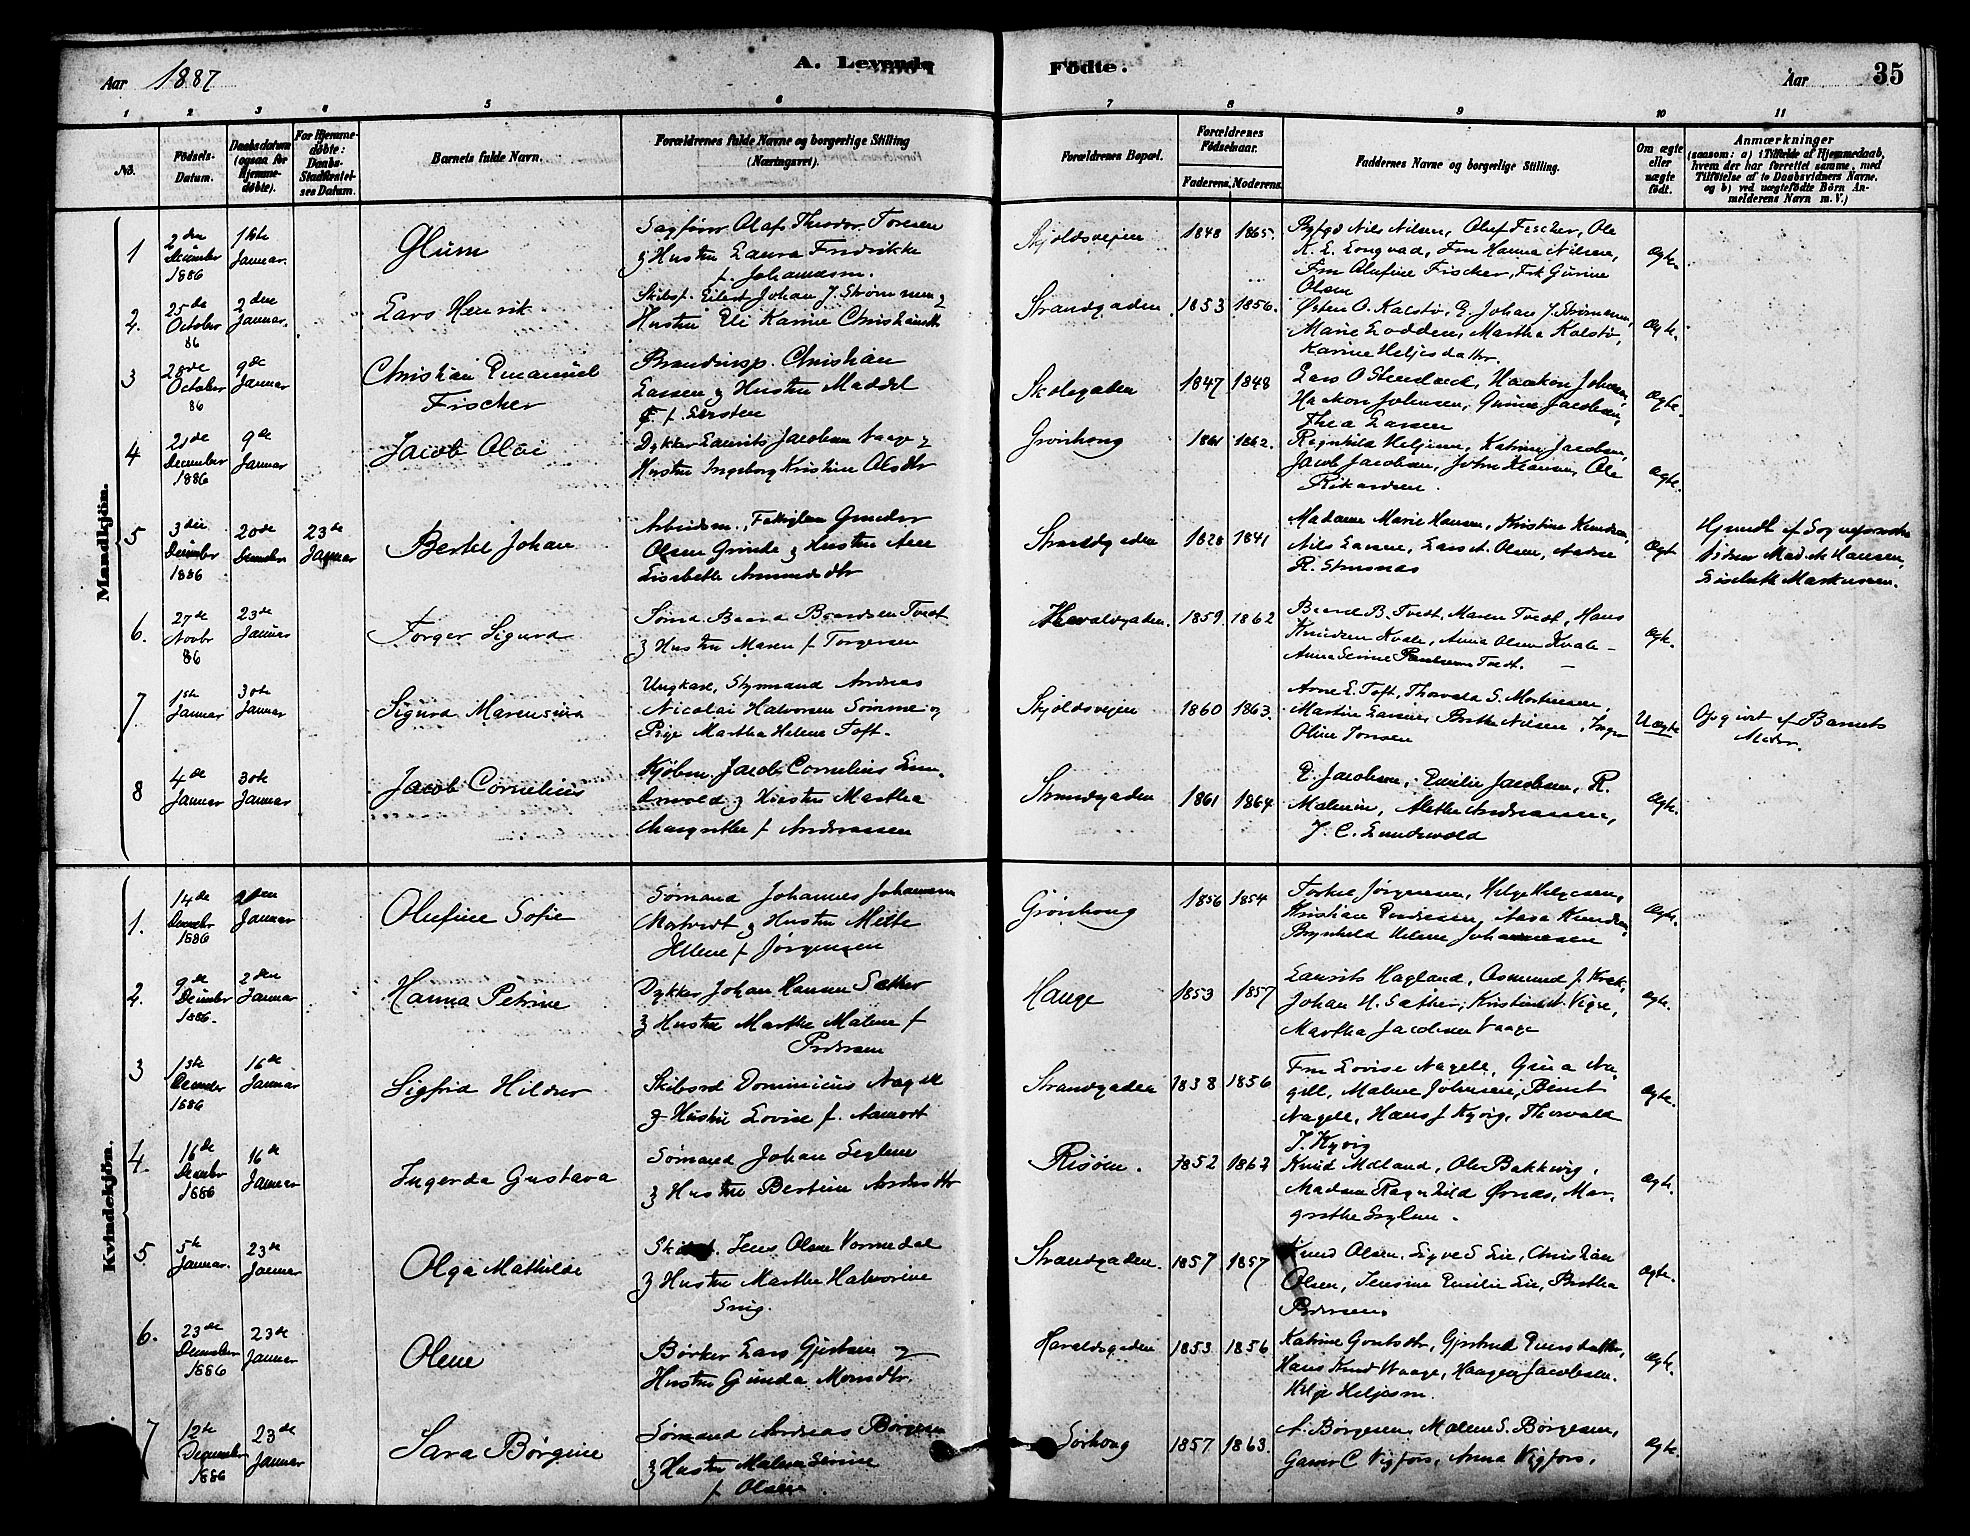 Aar 1887
A. Levende
Födte.
Aar
35
1 2 3 4 5 6 7 8 9 10 11
No.
Födsels-Datum.
Daabsdatum (ogsaa for Hjemmedøbte).
For Hjemmedøbte: Daabs-Stadfæstelses Datum.
Barnets fulde Navn.
Forældrenes fulde Navne og borgerlige Stilling (Næringsvei).
Forældrenes Bopæl.
Forældrenes Födselsaar.
Faderens. Moderens.
Faddernes Navne og borgerlige Stilling.
Om ægte eller uægte födt.
Anmærkninger
(saasom: a) i Tilfælde af Hjemmedaab,
hvem der har forrettet samme, med
Tilföielse af to Daabsvidners Navne,
og b) ved uægtefödte Börn An-
melderens Navn m. V.)
Mandkjön.
1 2den December 1886 1ste Januar.
Glum
Sagförer Olaf Theodor Toresen
& Hustru Laura Fredrikke
f. Johannesen.
Skjoldsvejen 1848 1865.
Nils Nilsen, Oluf Fischer, Ole
K. E. Longvad, Fru Hanna Nilsen,
Fru Olufine Fischer, Frk Gurine
Olsen
Ægte.
2. 25de October 86 2den Januar.
Lars Henrik
Skibsf. Eilert Johan J. Strømmen &
Hustru Eli Karine
Strandgaden 1853 1856.
Østen O. Kalstø, E. Johan J. Strømmen,
Marie Lodden, Martha Kalstø,
Karine Heljesdatter.
Ægte.
3 28de October 86 9de Januar
Christian Emanuel
Fischer
Brandinsp. Christian
Lassen & Hustru
Skolegaden 1847 1848
Lars O. Haakon
Haakon Johnsen, Gurine Jacobsen,
Thea Lassen
Ægte.
4 21de December 1886 9de Januar
Jacob Olai
Dykker Laurits Jacobsen Vaage &
Hustru Ingeborg Kristine Olsdtr
Grönhoug 1861 1862.
Ragnhild Katrine Jacobsen,
Jacob Jacobsen, John Hansen, Ole
Rikardsen.
Ægte.
5 3die December 1886 20de December 23de Januar
Bertel Johan
Arbeidsm., Gunder
Olsen Grinde & Hustru Ane
Lisebette Amundsdtr
Strandgaden 1828 1841
Madame Marie Hansen, Kristine Knudsen,
Nils Larsen, Lars A. Olsen,
R. Stensnæs
Ægte
Hjemdt af
Mad. M. Hansen,
Liselrath Markussen.
6. 27de Novbr 86 23de Januar
Torger Sigurd
Sømd. Baard Baardsen Tvedt
& Hustru Maren f. Torgersen
Haraldsgaden. 1859 1862
Baard B. Tvedt, Maren Tvedt, Hans
Knudsen Kvale, Anna Olsen Kvale –
Anna Serine Tvedt. –
Ægte.
7 1ste Januar 30te Januar
Sigurd Marensius
Ungkarl, Styrmand Andreas
Nicolai Halvorsen Sømme og
Pige Martha Helene Toft.
Skjoldsvejen 1860 1863.
Arne E. Toft, Thorvald S. Mortensen,
Martin Larsen, Berthe Nilsen, Inger
Oline Tonsen
Uægte
Opgivet af Barnets
Moder.
8 4de Januar 30te Januar
Jacob Cornelius
Kjöbm. Jacob Cornelius Lun-
dewold & Hustru Martha
Margrethe f. Andreassen
Strandgaden 1861 1864
E. Jacobsen, Emilie Jacobsen, R.
Alethe Andreassen,
J. C. Lundewold
Ægte.
Kvindekjön.
1. 14de December 1886 Januar
Olufine Sofie
Sømand Johannes Johannesen
& Hustru Mette
Helene f. Jørgensen
Grönhoug 1856 1854
Torkel Jørgensen, Helge Helgesen,
Kristian Endresen, Aasa Knudsen,
Brynhild Helene Johannesen
Ægte.
2. 9de December 1886. 2den Januar
Hanna Petrine
Dykker Johan Hansen Sæther
& Hustru Marthe Malene f.
Pedersen
Hauge 1853 1857
Laurits Hagland, Osmund J.
Johan H. Sæther, Kristian Vigre,
Martha Jacobsen Vaage
Ægte.
3 13de December 1886 16de Januar
Sigfrid Hildur
Skibsrd Dominicus Nagell
& Hustru Lovise f. Aamodt
Strandgaden 1838 1856
Fru Lovise Nagell, Na-
gell, Malene Johnsen, Bernt
Nagell, Hans J. Kyvig, Thorvald
J. Kyvig
Ægte.
4. 16de December 1886 16de Januar
Ingerda Gustava
Sømand Johan
& Hustru Bertine Andersdtr
Risøen. 1852 1862
Knud Mæland, Ole Bakkevig,
Madam Ragnhild Ørnæs, Mar-
grethe
Ægte.
5 5te Januar. 23de Januar
Olga Mathilde
Jens Olsen Vormedal
& Hustru Marthe Halvorine
Snig.
Strandgaden. 1857 1857
Knud Olsen, Sigve S. Lie, Christian
Olsen, Jensine Emilie Lie, Bertha
Pedersen.
Ægte.
6. 23de December 1886 23de Januar
Olene
Børker Lars Gjertsen &
Hustru Gunda Monsdtr.
Haraldsgaden 1853 1856
Katrine Gjertrud
Hans Knud Waage, Haagen Jacobsen.
Helje Heljesen.
Ægte.
7 12te December 1886 23de Januar
Sara Børgine
Sømand Andreas Børgesen
& Hustru Malene Serine
f. Olsen.
Sørhoug 1857 1863.
A. Børgesen, Malene S. Børgesen,
C. Vigfors, Anna Vigfors.
Ægte.